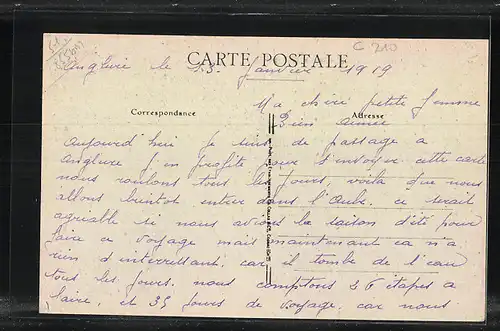 CARTE POSTALE
Anglure le 13 Janvier 1919
Ma chère petite femme
Bien aimée
Correspondance
Adresse
Aujourd'hui Je suis de passage a
Anglure J'en profite pour t'envoyer cette carte
nous roulons tous les Jours, voila que nous
allons bientot entrer dans l'Aube. ce serait
agriable si nous avions la saison d'été pour
faire ce voyage mais maintenant ca n'a
rien d'interressant. car il tombe de l'eau
tous les Jours. nous comptons 26 étapes a
faire, et 35 Jours de voyage, car nous